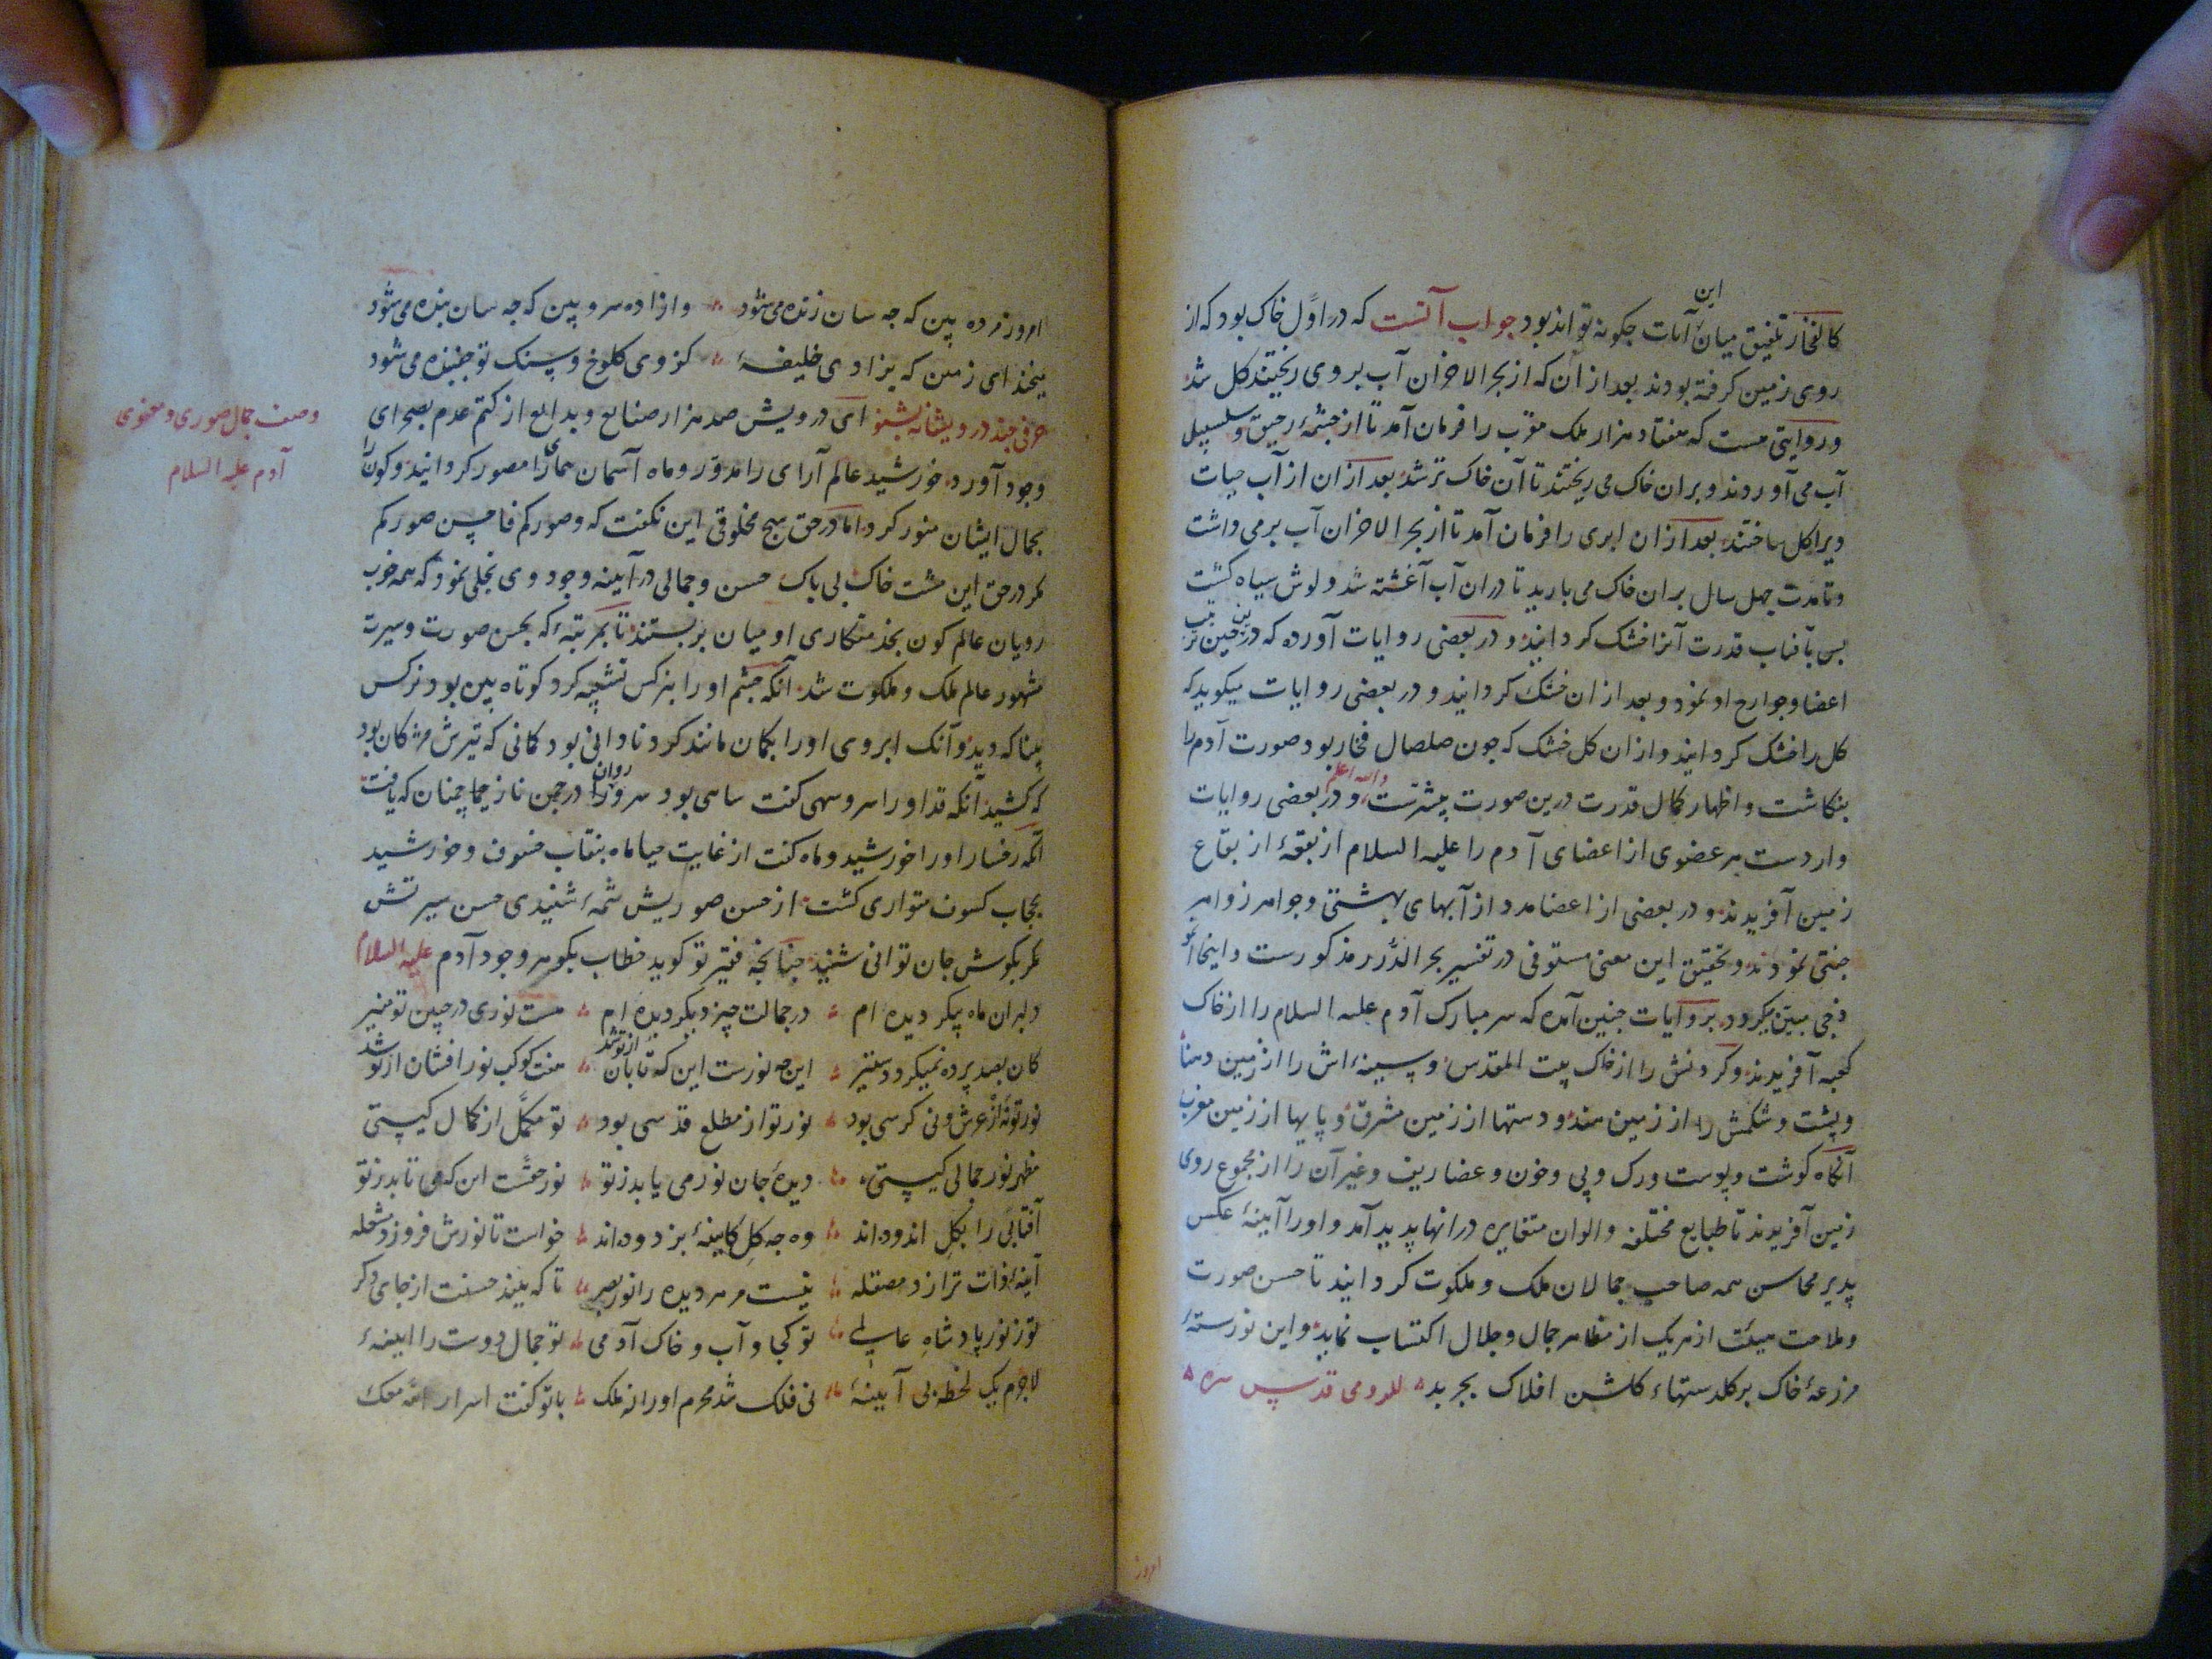 کالفخار تلفیق میان این آیات چکونه تواند بود جواب آنست که در اول خاک بود که از
روی زمین کرفته بودند بعد از آن که از بحر الاحزان آب بر وی ریختند کل شد
و روایتی هست که هفتاد هزار ملک مقرب را فرمان آمد تا از چشمهٔ رحیق و سلسبیل
آب می آوردند و بران خاک می ریختند تا آن خاک تر شد بعد ازان از آب حیات
ویرا کل ساختند بعد ازان ابری را فرمان آمد تا از بحر الاحزان آب بر می داشت
و تا مدت چهل سال بران خاک می بارید تا دران آب آغشته شد و لوش سیاه کشت
پس بآفتاب قدرت آنرا خشک کردانید و در بعضی روایات آورده که درین حین ترتیب
اعضا و جوارح او نمود و بعد ازان خشک کردانید و در بعضی روایات میکوید که
کل را خشک کردانید و ازان کل خشک که چون صلصال فخار بود صورت آدم را
بنکاشت و اظهار کمال قدرت درین صورت بیشترست والله اعلم و در بعضی روایات
واردست هر عضوی از اعضای آدم را علیه السلام از بقعهٔ از بقاع
زمین آفریدند و در بعضی از اعضا مدد از آبهای بهشتی و جواهر زواهر
جنتی نمودند و تحقیق این معنی مستوفی در تفسیر بحر الدرر مذکورست و اینجا
بروایات چنین آمده که سر مبارک آدم علیه السلام را از خاک
کعبه آفریدند و کردنش را از خاک بیت المقدس و سینه اش را از زمین
و پشت و شکمش را از زمین هند و دستها از زمین مشرق و پایها از زمین مغرب
آنکاه کوشت و پوست و رک و پی و خون و غضاریف و غیر آن را از مجموع روی
زمین آفریدند تا طبایع مختلفه و الوان متغایره در انها پدید آمد و او را آیینهٔ عکس
پذیر محاسن همه صاحب جمالان ملک و ملکوت کردانید تا حسن صورت
و ملاحت هیئت از هریک از مظاهر جمال و جلال اکتساب نماید و این نورستهٔ
مزرعهٔ خاک بر کلدستهاء کلشن افلاک بچربد للرومی قدس سره
امروز
امروز مرده بین که چه سان زنده می شود وازاده سرو بین که چه سان بنده می شود
میخند ای زمین که بزادی خلیفهٔ کز وی کلوخ و سنک تو جنبنده می شود
حرفی چند درویشانه بشنو ای درویش صد هزار صنایع و بدایع از کتم عدم بصحرای
وجود آورد خورشید عالم آرای را مدور و ماه آسمان سمای را مصور کردانید و کون را
بجمال ایشان منور کرد اما در حق هیچ مخلوقی این نکفت که و صورکم فاحسن صورکم
مکر در حق این مشت خاک بی باک حسن و جمالی در آیینه وجود وی تجلی نمود که همه خوب
رویان عالم کون بخدمتکاری او میان بربستند تا بمرتبهٔ که بحسن صورت و سیرت
مشهور عالم ملک و ملکوت شد آنکه چشم او را بنرکس تشبیه کرد کوتاه بین بود نرکس
بینا که دید و آنک ابروی او را بکمان مانند کرد نادانی بود کمانی که تیرش مژکان بود
که کشید آنکه قد او را سرو سهی کفت ساهی بود سرو روان را در چمن ناز چماچمان که یافت
آنکه رخسار او را خورشید و ماه کفت از غایت حیا ماه بنقاب خسوف و خورشید
بحجاب کسوف متواری کشت از حسن صوریش شمهٔ شنیدی حسن سیرتش
مکر بکوش جان توانی شنید چنانچه فقیر تو کوید خطاب بکوهر وجود آدم علیه السلام
دلبران ماه پیکر دیده ام در جمالت چیز دیکر دیده ام هست نوری در جبین تو منیر
کان بصد پرده نمیکردد ستیر این چه نورست این که تابان از تو شد هفت کوکب نور افشان از تو شد
نور تو نه از عرش و نی کرسی بود نور تو از مطلع قدسی بود تو مکمل از کمال کیستی
مظهر نور جمالی کیستی دیدهٔ جان نور می یابد ز تو نور حقست این که می تابد ز تو
آفتابی را بکل اندوده اند وه چه کل کایینهٔ بزدوده اند خواست تا نورش فروزد مشعله
آینهٔ ذات ترا زد مصقله نیست مر هر دیده را نور بصر تا که بیند حسنت از جای دکر
تو ز نور پادشاه عالمی تو کجا و آب و خاک آدمی تو جمال دوست را آیینهٔ
لاجرم یک لحظه بی آیینهٔ نی فلک شد محرم او را نه ملک با تو کفت اسرار الله معک
وصف جمال صوری و معنوی
آدم علیه السلام